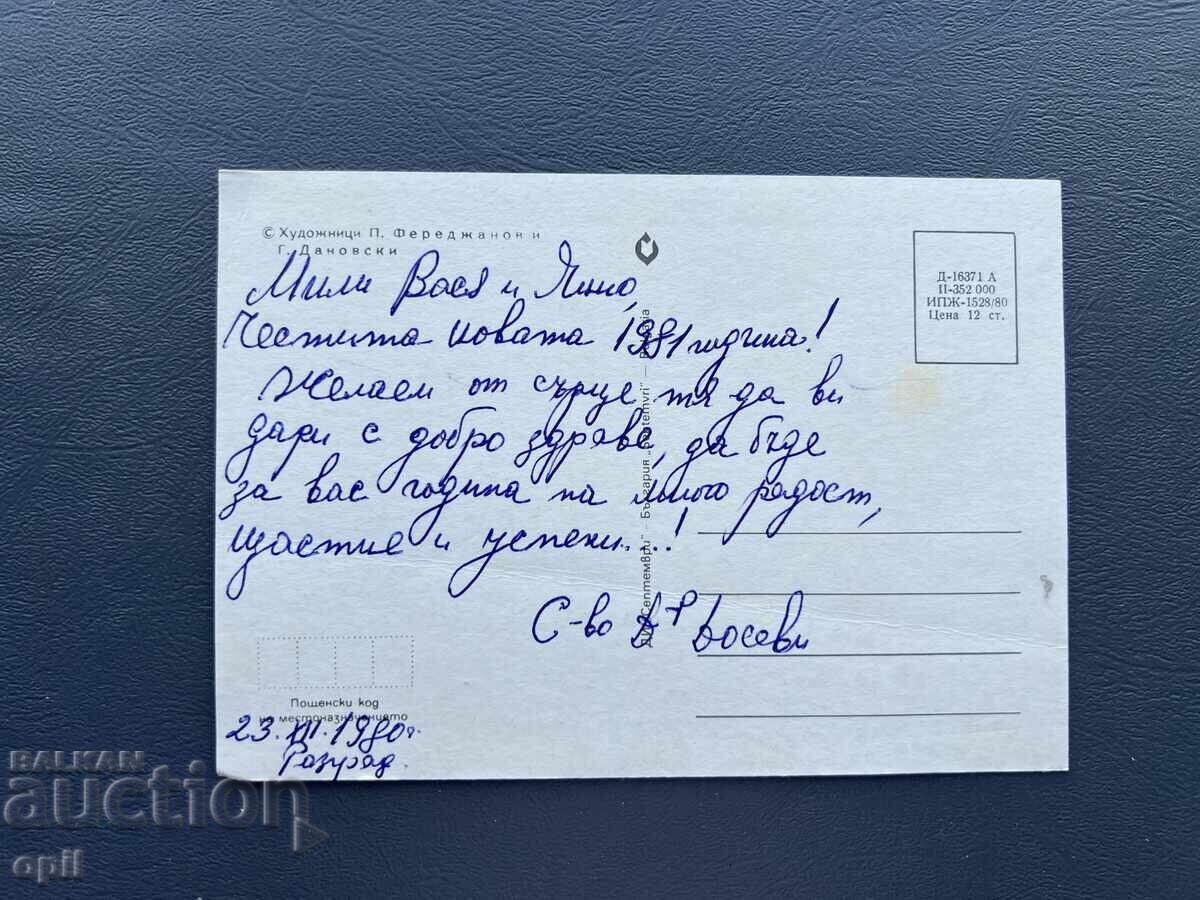 © Художници П. Фереджанов и
Г. Дановски
Мили Вася и
Честита новата 1981 година!
Желаем от сърце тя да ви
дари с добро здраве, да бъде
за вас година на много радост,
щастие и успехи...!
С-во Д-р Досеви
Пощенски код
на местоназначението
23. XII. 1980 г.
Разград.
ДИ „Септември" — България „Septemvri" —
Д-16371 А
II-352 000
ИПЖ-1528/80
Цена 12 ст.
BALKAN
auction
opil